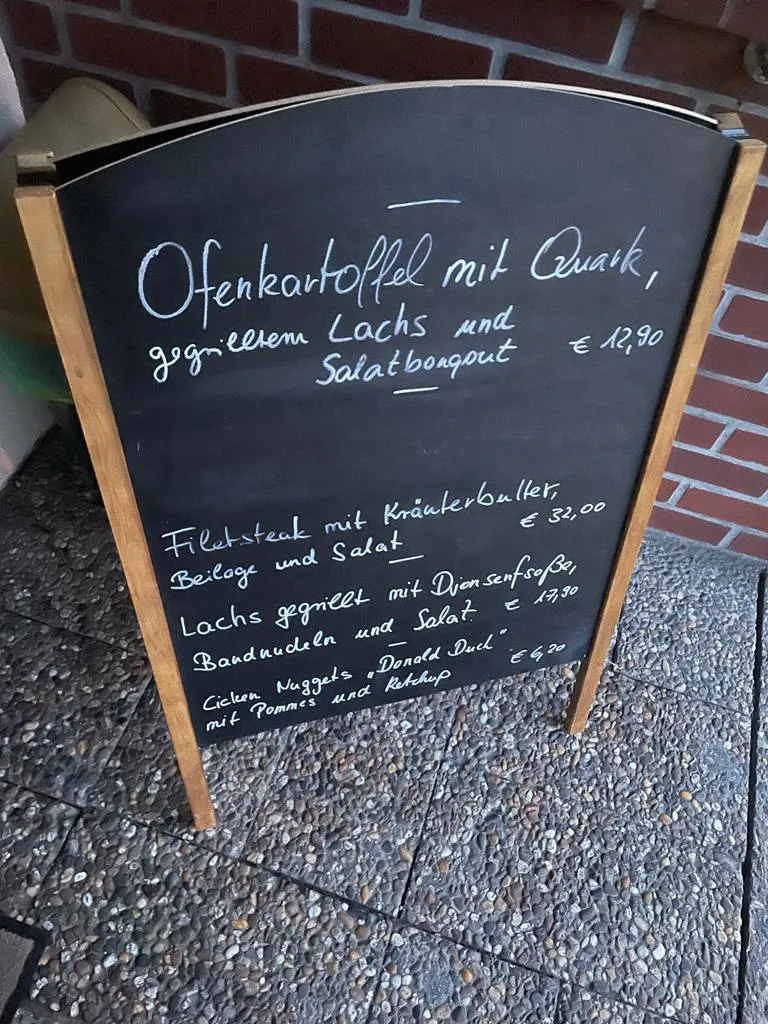 Ofenkartoffel mit Quark,
gegrilltem Lachs und
Salatbouqout € 12,90
Filetsteak mit Kräuterbutter,
€ 32,00
Beilage und Salat
Lachs gegrillt mit Djonsenfsoße,
Bandnudeln und Salat € 17,90
Cicken Nuggets "Donald Duck"
mit Pommes und Ketchup € 6,20